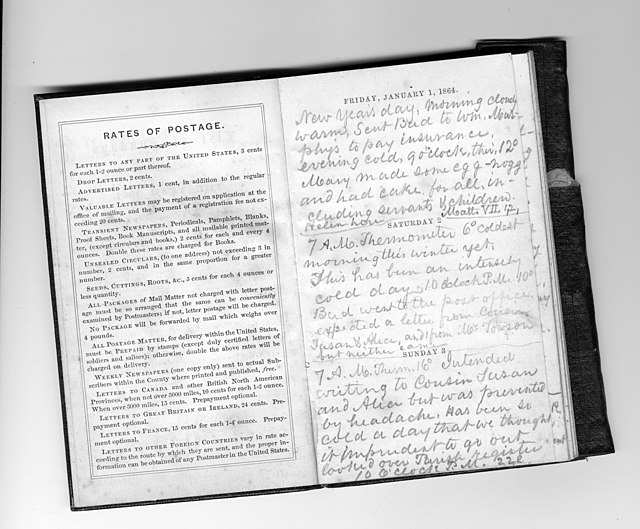 RATES OF POSTAGE.
LETTERS TO ANY PART OF THE UNITED STATES, 3 cents
for each 1-2 ounce or part thereof.
DROP LETTERS, 2 cents.
ADVERTISED LETTERS, 1 cent, in addition to the regular
rates.
VALUABLE LETTERS may be registered on application at the
office of mailing, and the payment of a registration fee not ex-
ceeding 20 cents.
TRANSIENT NEWSPAPERS, Periodicals, Pamphlets, Blanks,
Proof Sheets, Book Manuscripts, and all mailable printed mat-
ter, (except circulars and books,) 2 cents for each and every 4
ounces. Double these rates are charged for Books.
UNSEALED CIRCULARS, (to one address) not exceeding 3 in
number, 2 cents, and in the same proportion for a greater
number.
SEEDS, CUTTINGS, ROOTS, &c., 2 cents for each 4 ounces or
less quantity.
ALL PACKAGES of Mail Matter not charged with letter post-
age must be so arranged that the same can be conveniently
examined by Postmasters; if not, letter postage will be charged.
NO PACKAGE will be forwarded by mail which weighs over
4 pounds.
ALL POSTAGE MATTER, for delivery within the United States,
must be PREPAID by stamps (except duly certified letters of
soldiers and sailors); otherwise, double the above rates will be
charged on delivery.
WEEKLY NEWSPAPERS (one copy only) sent to actual Sub-
scribers within the County where printed and published, free.
LETTERS TO CANADA and other British North American
Provinces, when not over 3000 miles, 10 cents for each 1-2 ounce.
When over 3000 miles, 15 cents. Prepayment optional.
LETTERS TO GREAT BRITAIN OR IRELAND, 24 cents. Pre-
payment optional.
LETTERS TO FRANCE, 15 cents for each 1-4 ounce. Prepay-
ment optional.
LETTERS TO OTHER FOREIGN COUNTRIES vary in rate ac-
cording to the route by which they are sent, and the proper in-
formation can be obtained of any Postmaster in the United States.
FRIDAY, JANUARY 1, 1864.
New Years day, morning cloudy
warm, Sent Bud to Wm. Mur-
phys to pay insurance,
evening cold, 9 o'clock, ther, 12°
Mary made some egg-nogg
and had cake, for all, in-
cluding servants & children.
Helen here Matt. VII. 12.
SATURDAY 2
7 A.M. Thermometer 6° Coldest
morning this winter yet,
This has been an intensely
cold day – 10 Oclock P.M. 10°
Bud went to the post office
expected a letter from Cousin
Susan & Alice, and from Mr Towson
but neither came
SUNDAY 3
7 A.M. Therm. 16° Intended
writing to Cousin Susan
and Alice but was prevented
by headache. Has been so
cold a day that we thought
it imprudent to go out
looked over Parish Register
10 O'clock P.M. 22°